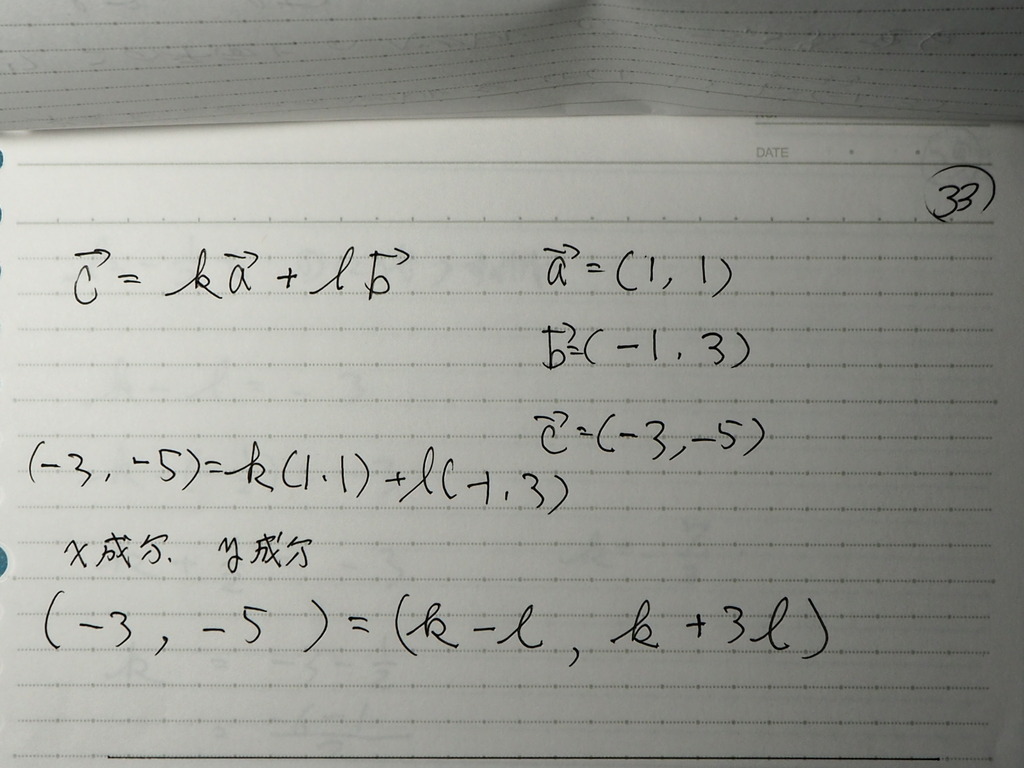 DATE
33
c⃗ = k a⃗ + l b⃗
a⃗ = (1, 1)
b⃗ = (-1, 3)
c⃗ = (-3, -5)
(-3, -5) = k(1, 1) + l(-1, 3)
x成分, y成分
(-3, -5) = (k-l, k+3l)